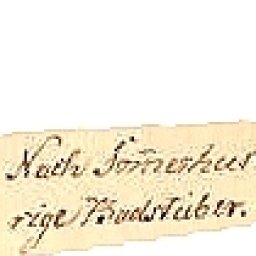 Nach Som̅erhus
rige Badstüber.